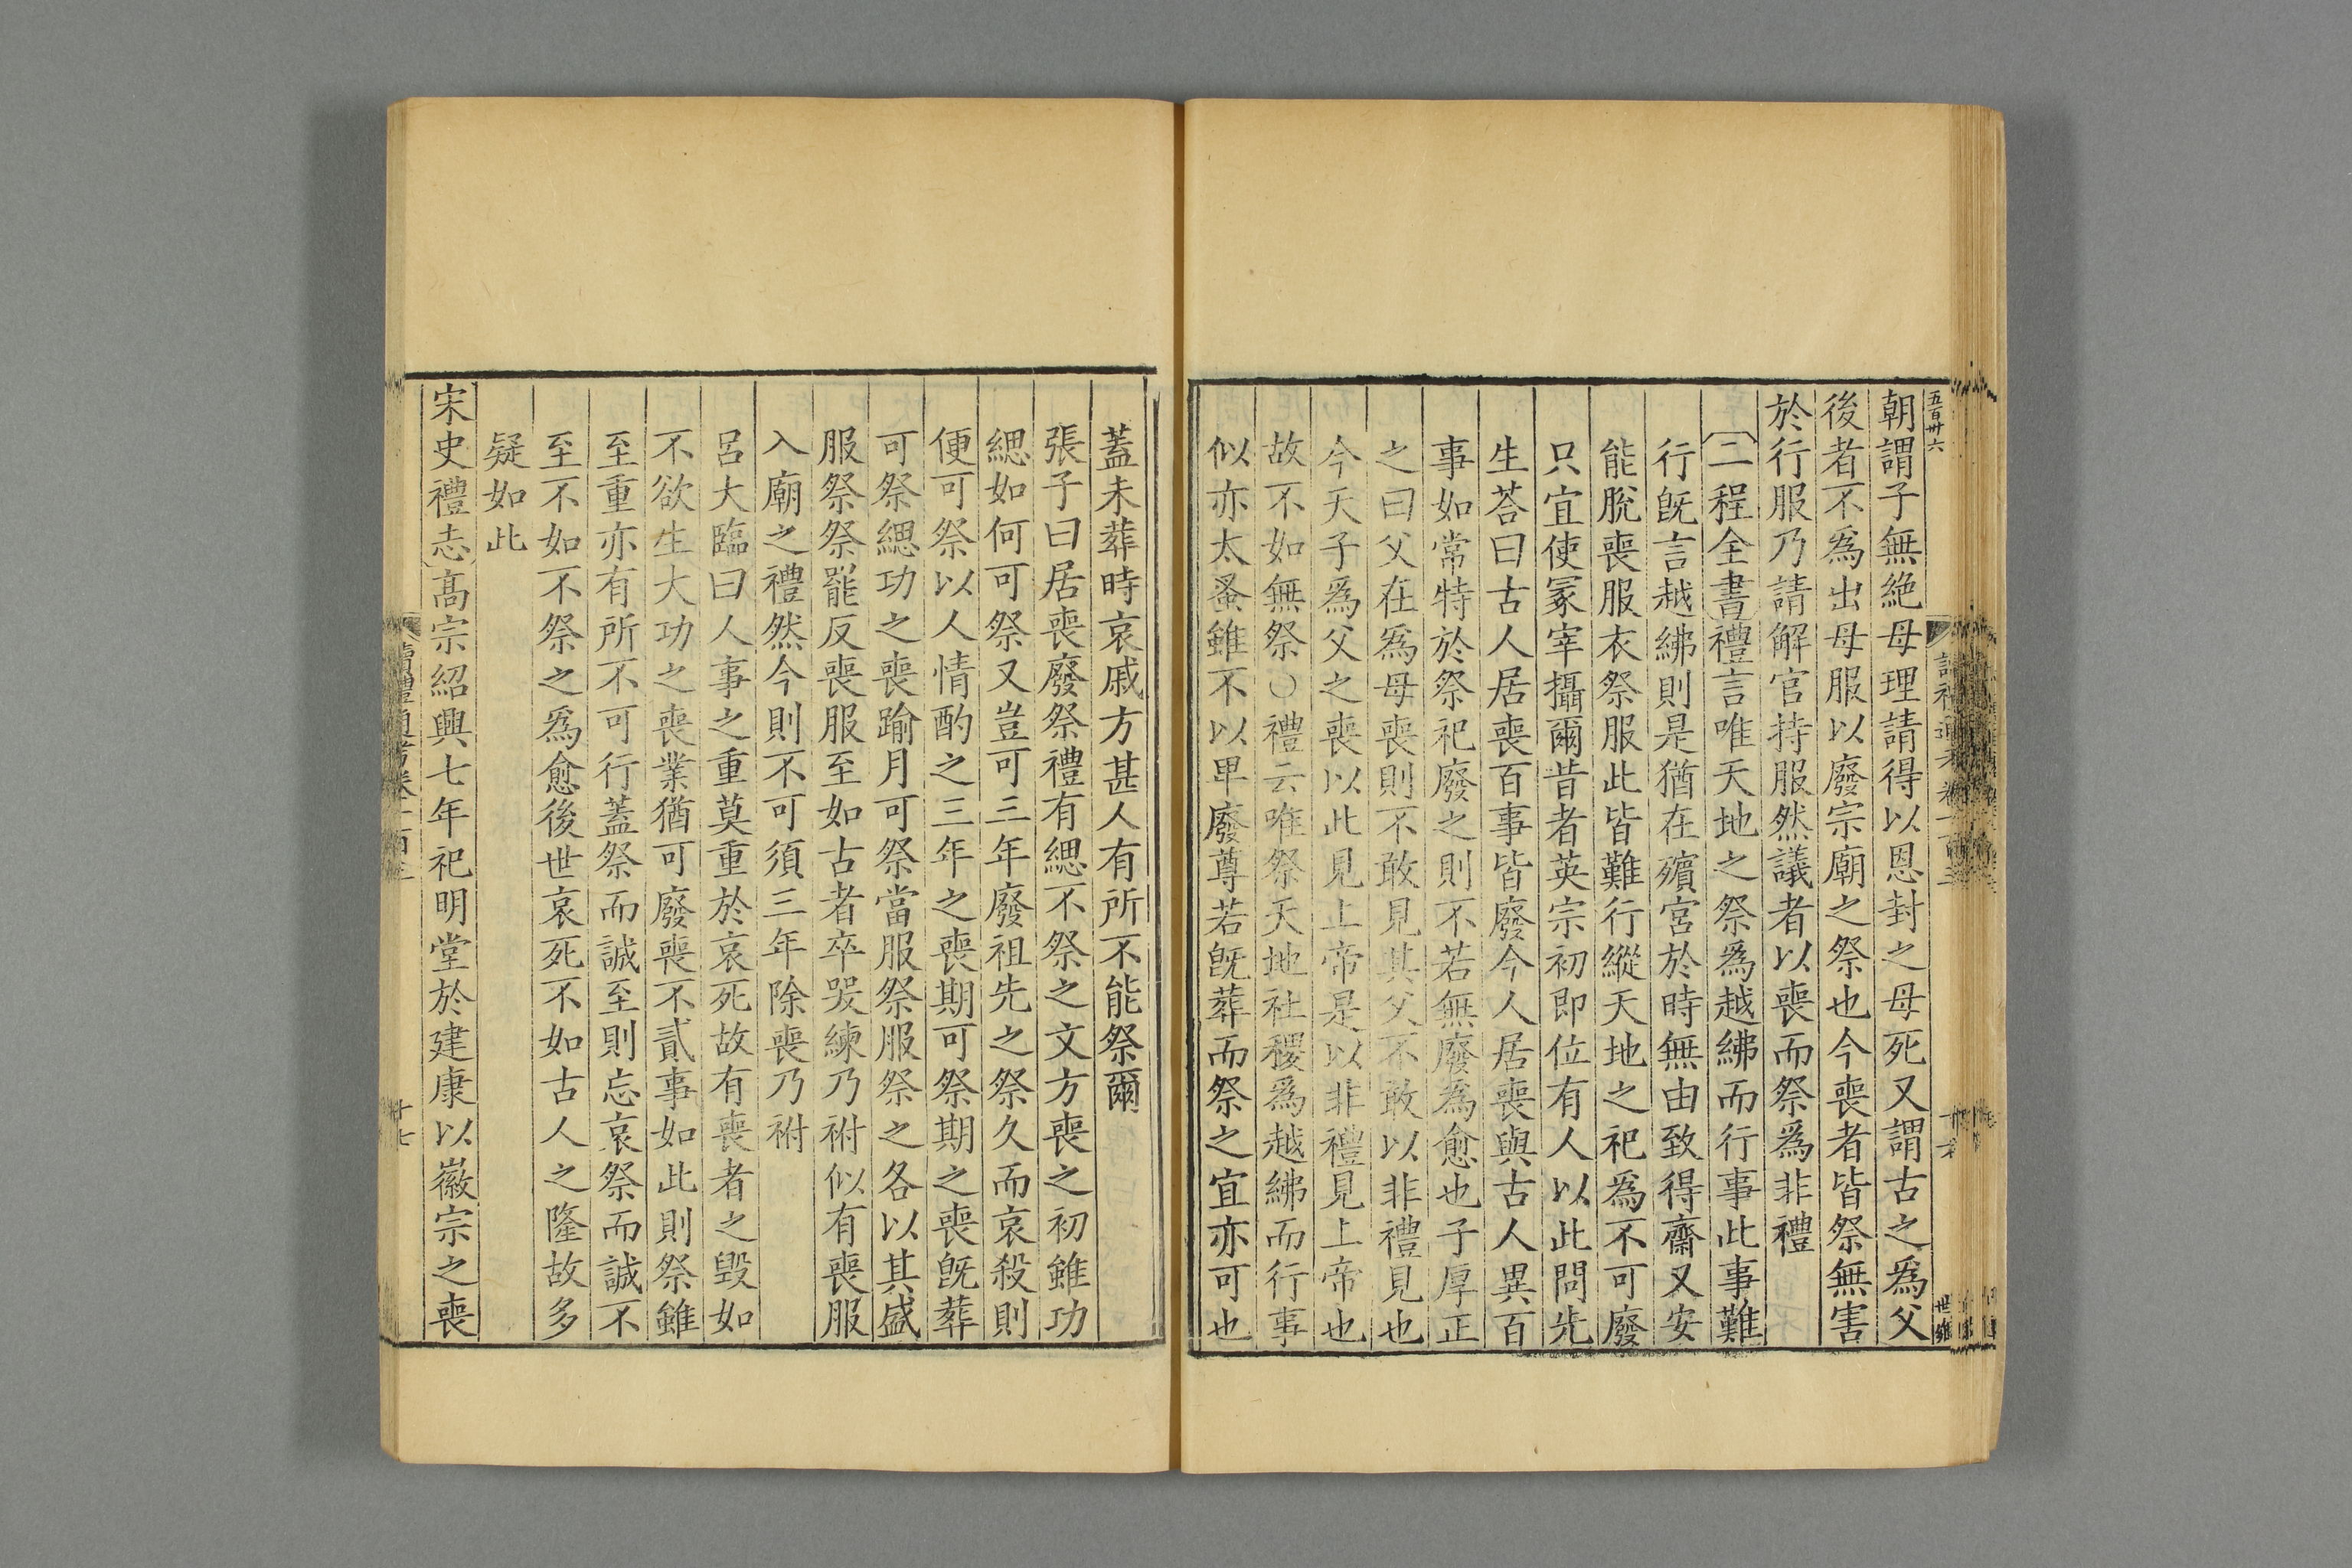 五百卅六
朝謂子無絶母理請得以恩封之母死又謂古之爲父
後者不爲出母服以廢宗廟之祭也今喪者皆祭無害
於行服乃請解官持服然議者以喪而祭爲非禮
二程全書禮言唯天地之祭爲越紼而行事此事難
行旣言越紼則是猶在殯宮於時無由致得齋又安
能脫喪服衣祭服此皆難行縱天地之祀爲不可廢
只宜使冢宰攝爾昔者英宗初即位有人以此問先
生荅曰古人居喪百事皆廢今人居喪與古人異百
事如常特於祭祀廢之則不若無廢爲愈也子厚正
之曰父在爲母喪則不敢見其父不敢以非禮見也
今天子爲父之喪以此見上帝是以非禮見上帝也
故不如無祭○禮云唯祭天地社稷爲越紼而行事
似亦太蚤雖不以卑廢尊若旣葬而祭之宜亦可也
蓋未葬時哀戚方甚人有所不能祭爾
張子曰居喪廢祭禮有緦不祭之文方喪之初雖功
緦如何可祭又豈可三年廢祖先之祭久而哀殺則
便可祭以人情酌之三年之喪期可祭期之喪旣葬
可祭緦功之喪踰月可祭當服祭服祭之各以其盛
服祭祭罷反喪服至如古者卒哭練乃祔似有喪服
入廟之禮然今則不可須三年除喪乃祔
呂大臨曰人事之重莫重於哀死故有喪者之毀如
不欲生大功之喪業猶可廢喪不貳事如此則祭雖
至重亦有所不可行蓋祭而誠至則忘哀祭而誠不
至不如不祭之爲愈後世哀死不如古人之隆故多
疑如此
宋史禮志高宗紹興七年祀明堂於建康以徽宗之喪
十七